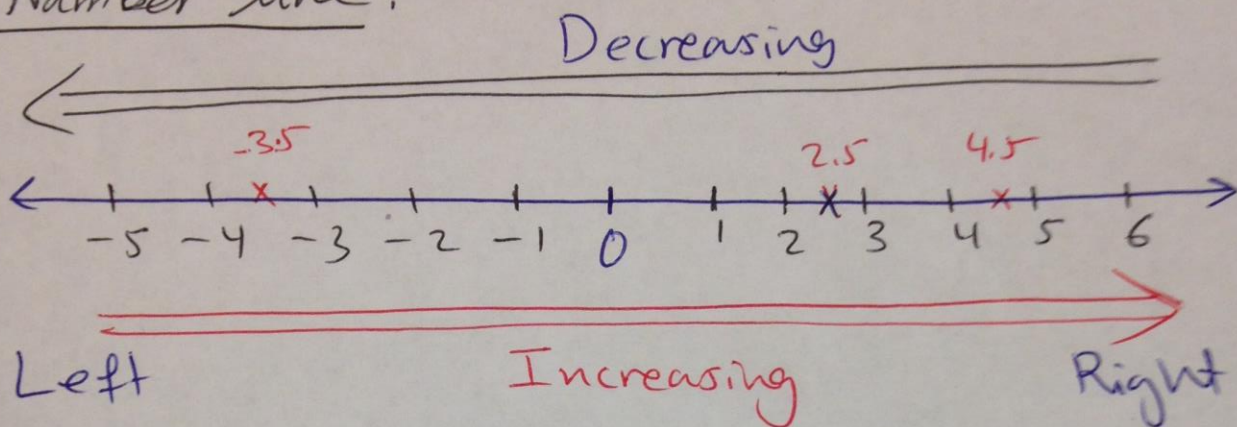 Number Line :
Decreasing
-3.5 2.5 4.5
-5 -4 -3 -2 -1 0 1 2 3 4 5 6
Left Increasing Right